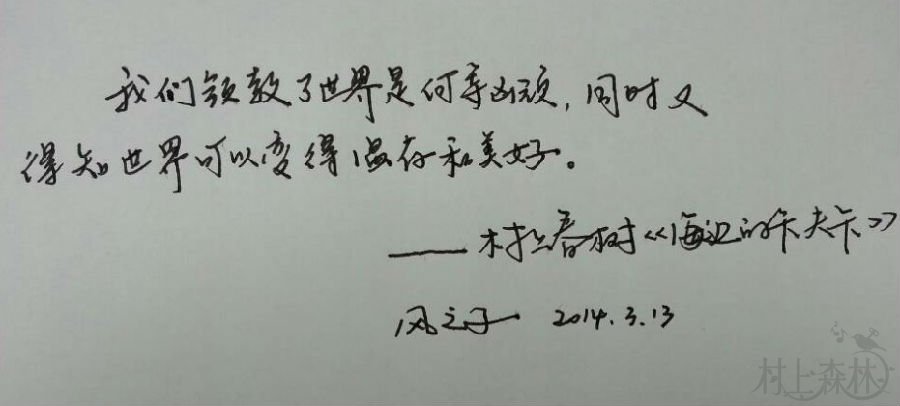 我们领教了世界是何等凶顽，同时又
得知世界可以变得温存和美好。
——村上春树《海边的卡夫卡》
风之子 2014.3.13
村上森林